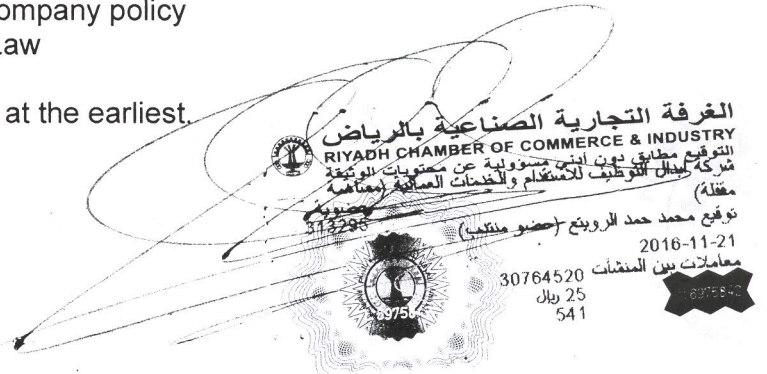 ompany policy
aw
at the earliest.
الغرفة التجارية الصناعية بالرياض
RIYADH CHAMBER OF COMMERCE & INDUSTRY
التوقيع مطابق دون أدنى مسؤولية عن محتويات الوثيقة
شركة إبدال التوظيف للاستقدام والخدمات العمالية (مساهمة
مقفلة)
عضوية
313295
توقيع محمد حمد الرويتع (عضو منتدب)
2016-11-21
معاملات بين المنشآت 30764520
25 ريال
541
6975842